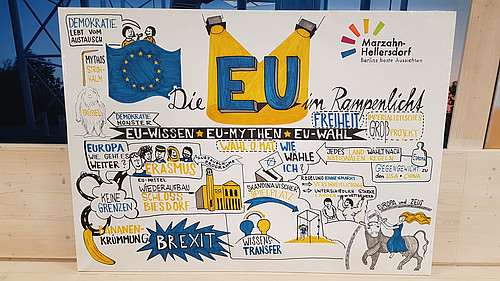 DEMOKRATIE
LEBT VOM
AUSTAUSCH
MYTHOS
STROH-
HALM
BRÜSSEL
DEMOKRATIE
MONSTER
Die EU im Rampenlicht
Marzahn-
Hellersdorf
Berlins beste Aussichten
FREIHEIT
IMPERIALISTISCHES
GROẞ
PROJEKT
EU-WISSEN ★ EU-MYTHEN ★ EU-WAHL
EUROPA
WIE GEHT ES
WEITER?
ERASMUS
WAHL O MAT
WIE
WÄHLE
ICH?
JEDES LAND WÄHLT NACH
NATIONALEN REGELN
EUROPA
GEGENGEWICHT
ZU DEN
USA + CHINA
KEINE
GRENZEN
EU-MITTEL
WIEDERAUFBAU
SCHLOSS
BIESDORF
SKANDINAVISCHER
SPIELPLATZ
REGELUNG BINNENMARKT
VEREINHEITLICHUNG
BANANEN-
KRÜMMUNG
BREXIT
WISSENS
TRANSFER
EUROPA und ZEUS